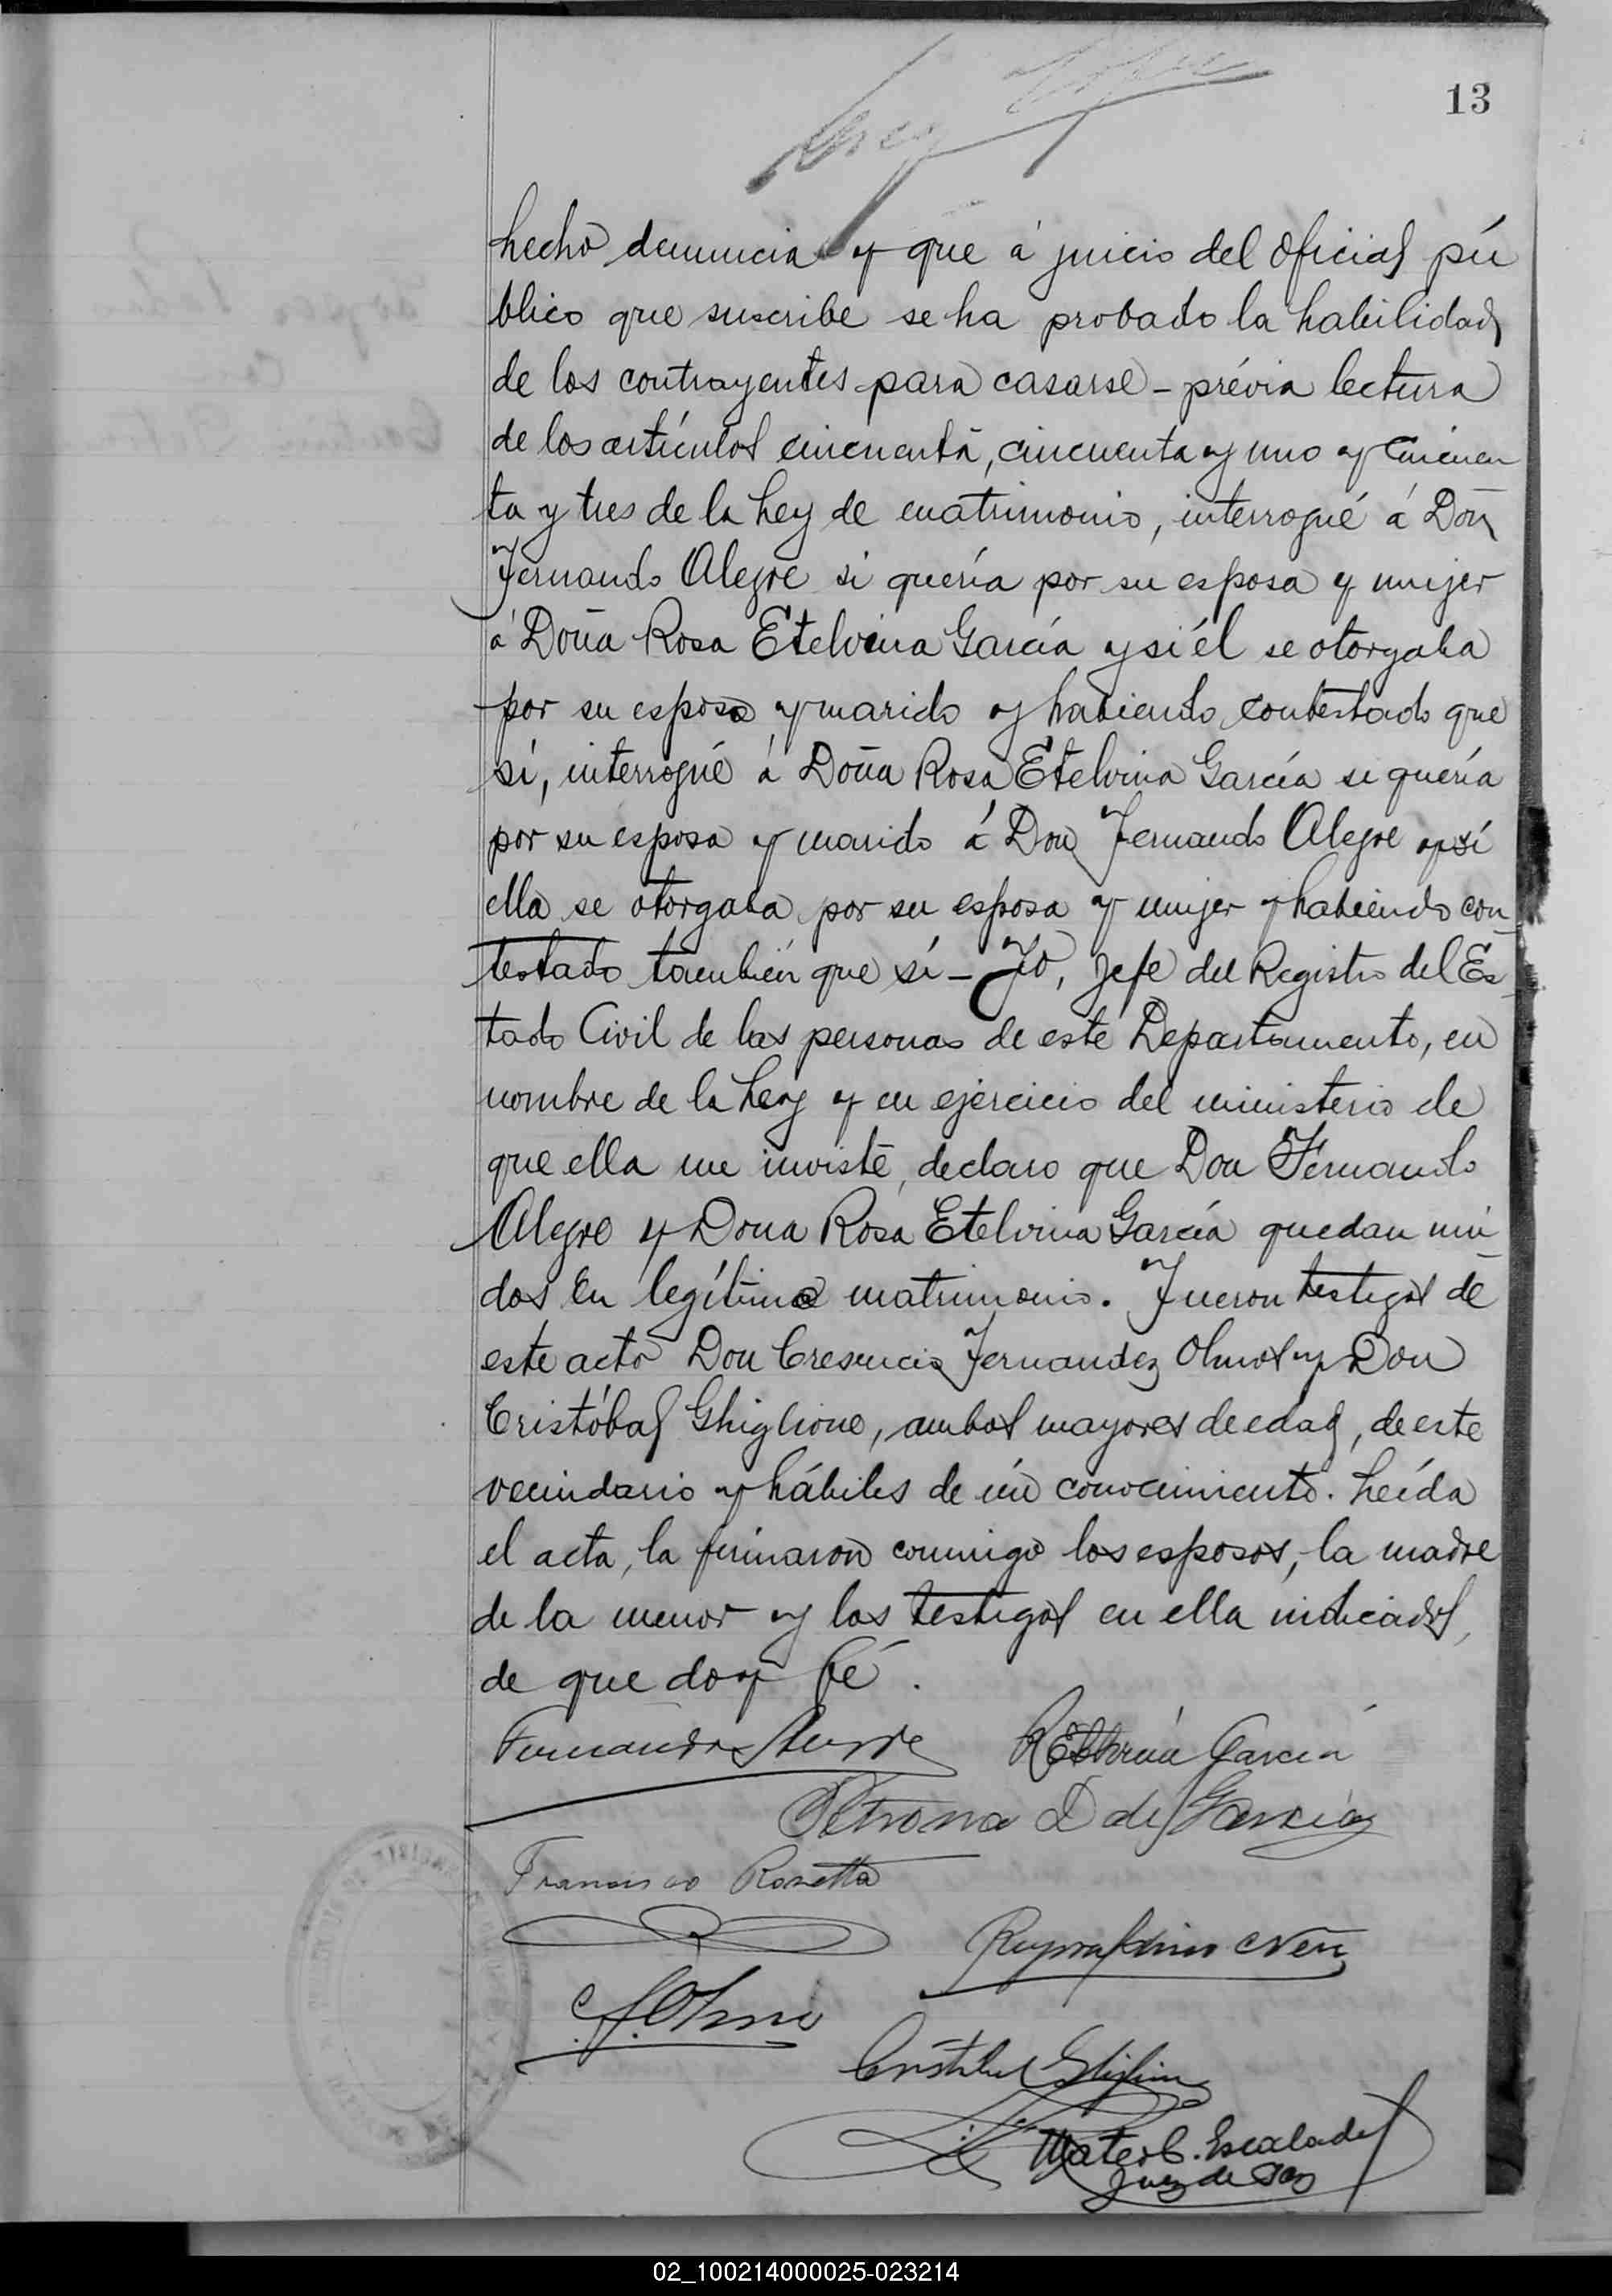 13
hecho denuncia y que á juicio del oficial pú
blico que suscribe se ha probado la habilidad
de los contrayentes para casarse - prévia lectura
de los artículos cincuenta, cincuenta y uno y cincuen
ta y tres de la Ley de matrimonio, interrogué á Don
Fernando Alegre si quería por su esposa y mujer
á Doña Rosa Etelvina García y si él se otorgaba
por su esposo y marido y habiendo contestado que
sí, interrogué á Doña Rosa Etelvina García si quería
por su esposo y marido á Don Fernando Alegre y si
ella se otorgaba por su esposa y mujer y habiendo con
testado también que sí - Yo, Jefe del Registro del Es
tado Civil de las personas de este Departamento, en
nombre de la Ley y en ejercicio del ministerio de
que ella me inviste, declaro que Don Fernando
Alegre y Doña Rosa Etelvina García quedan uni
dos en legítimo matrimonio. Fueron testigos de
este acto Don Cresencio Fernandez Olmos y Don
Cristóbal Ghiglione, ambos mayores de edad, de este
vecindario y hábiles de mi conocimiento. Leída
el acta, la firmaron conmigo los esposos, la madre
de la menor y los testigos en ella indicados,
de que doy fé.
Fernando Alegre R Etelvina García
Petrona D de García
Francisco Rosetta
C F. Olmos
Cristóbal Ghiglione
Mateo C. Escalada
Juez de Paz
02_100214000025-023214